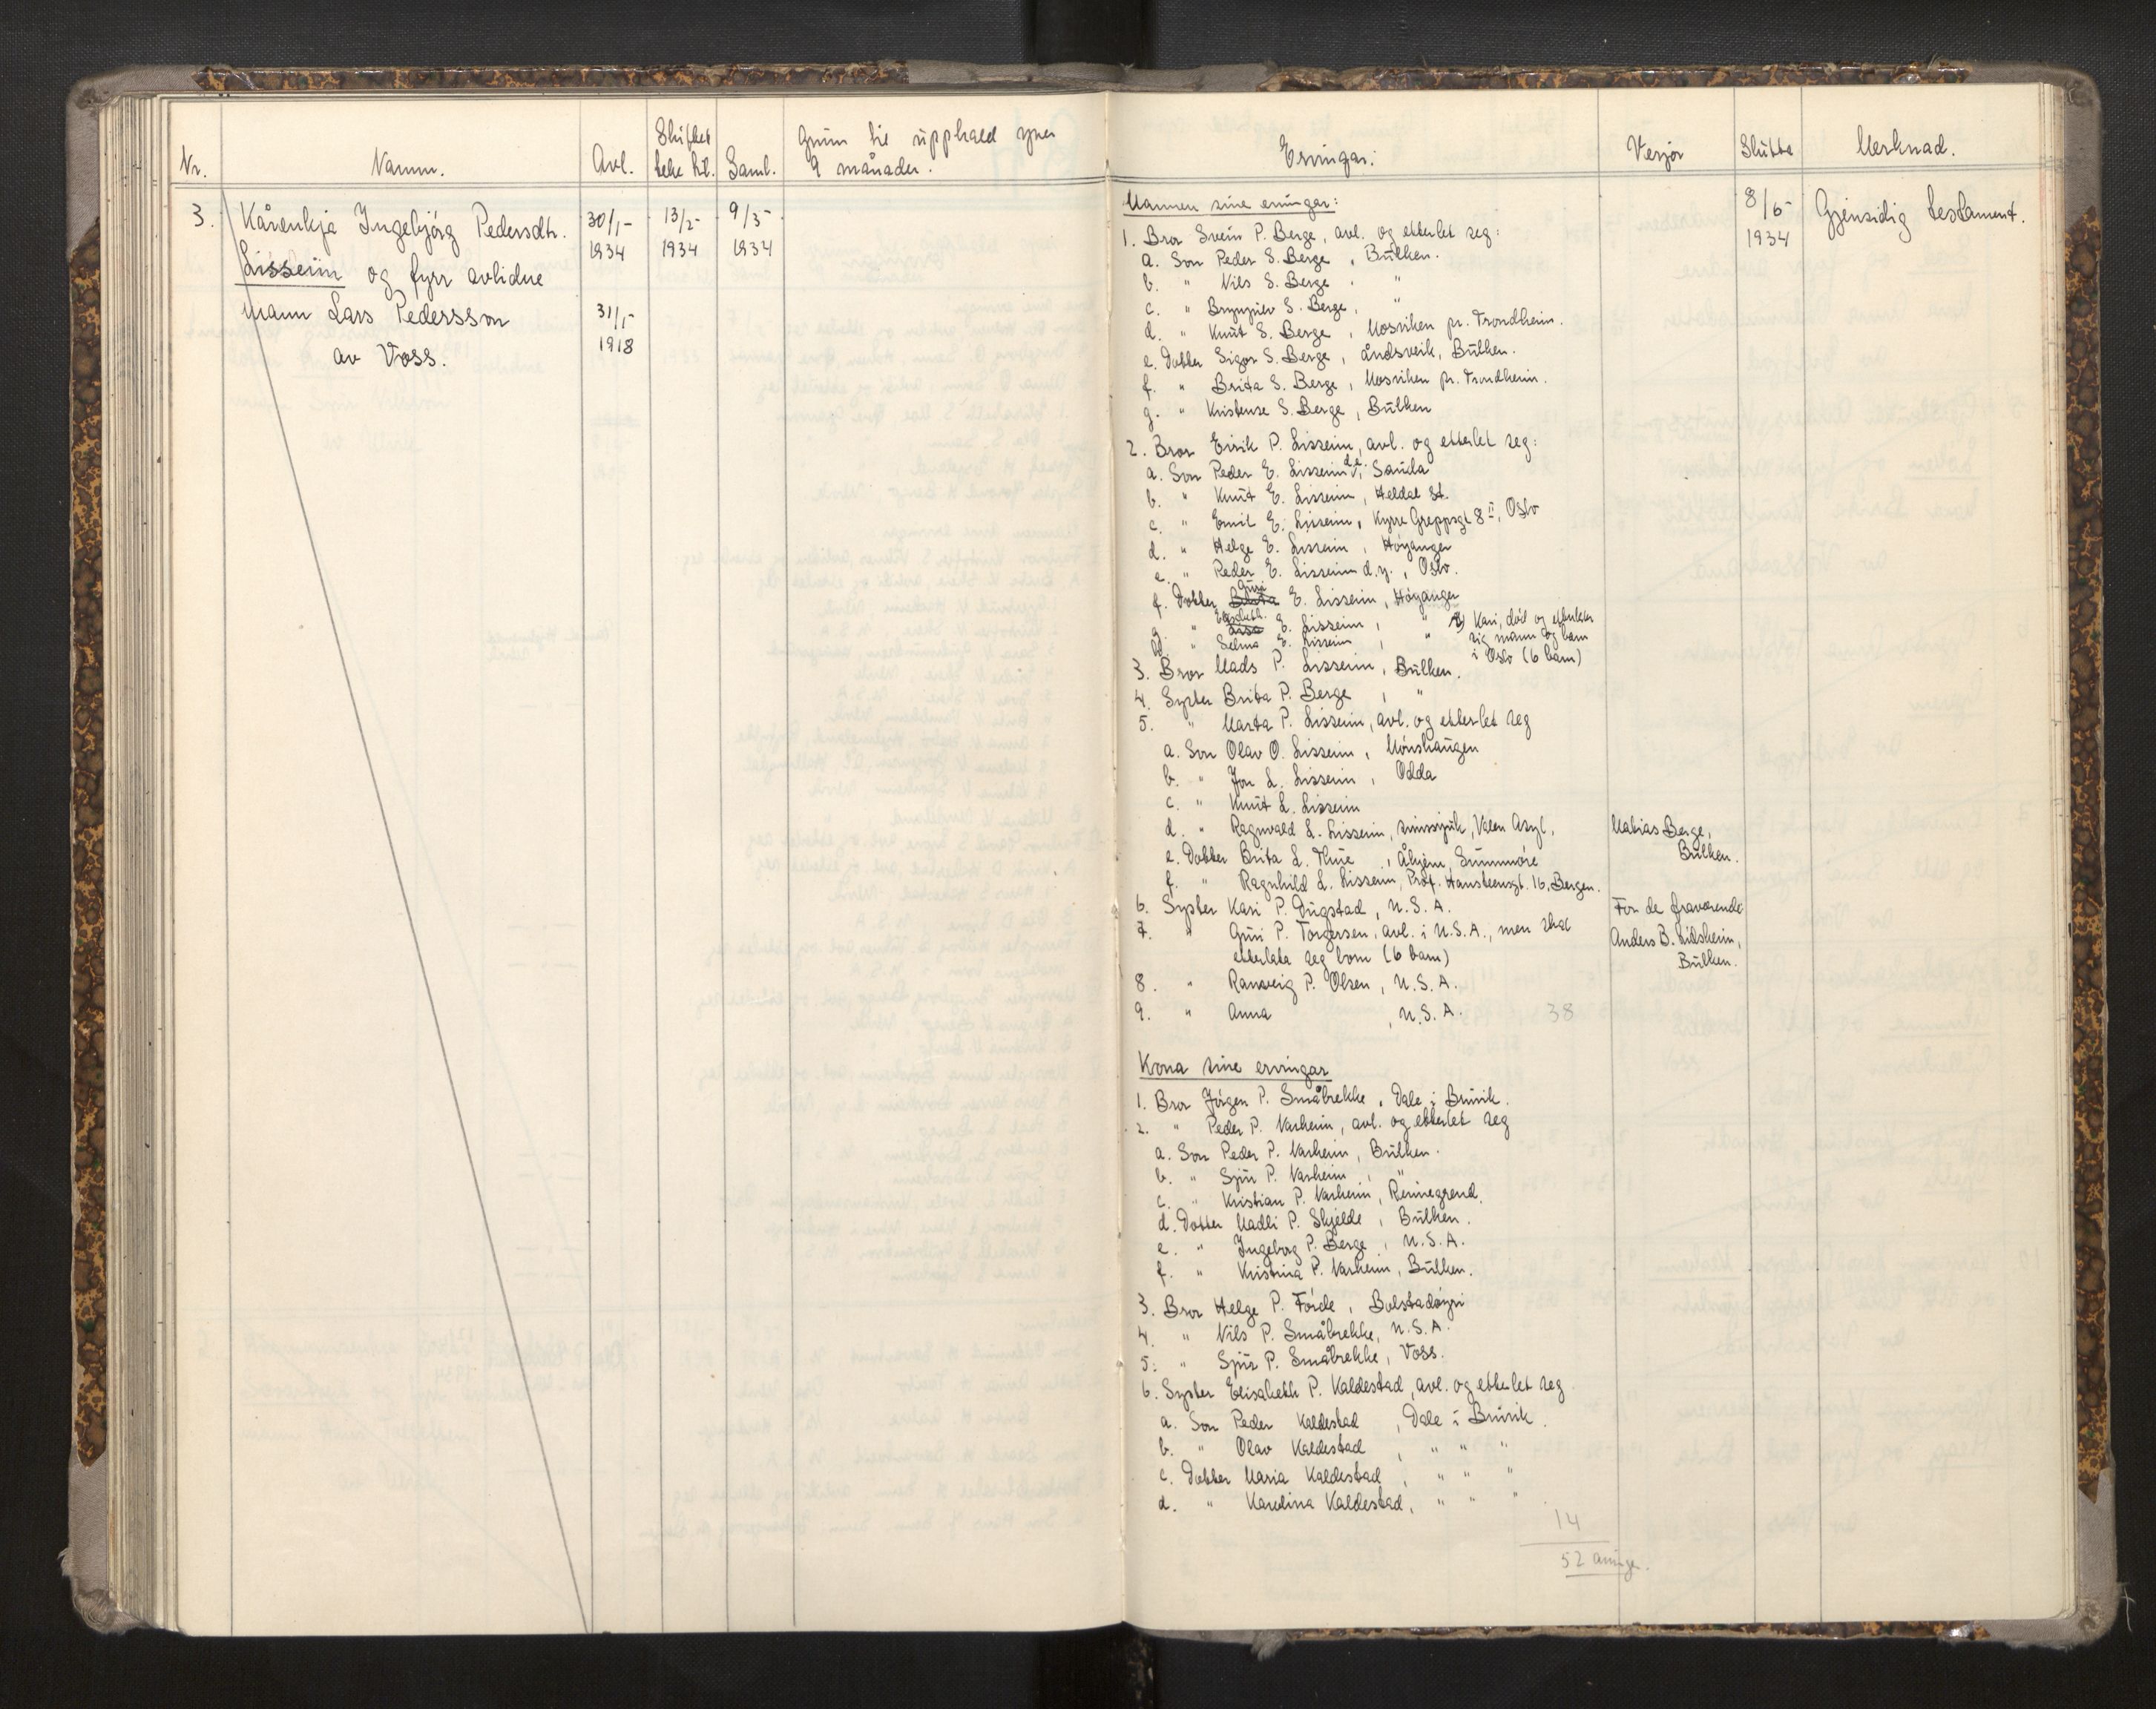 Nr.
Namn.
Avl.
Skiftet
teke til.
Saml.
Grun til upphald yver
9 månader.
3.
Kårenkja Ingebjörg Pedersdtr.
Lisseim og fyrr avlidne
mann Lars Pedersson
av Voss.
30/1-
1934
31/5-
1918
13/2-
1934
9/3-
1934
Ervingar:
Verjor
Slutta
Merknad.
Mannen sine ervingar:
8/5-
1934
Gjensidig testament.
1. Bror Svein P. Berge, avl. og etterlet seg:
a. Son Peder S. Berge, Bulken.
b. " Nils S. Berge, "
c. " Brynjulv S. Berge, "
d. " Knut S. Berge, Mosviken pr. Trondheim.
e. Dotter Sigor S. Berge, Åndsveik, Bulken.
f. " Brita S. Berge, Mosviken pr. Trondheim.
g. " Kristense S. Berge, Bulken
2. Bror Eirik P. Lisseim, avl. og etterlet seg:
a. Son Peder E. Lisseim d.e., Sauda
b. " Knut E. Lisseim, Heldal st.
c. " Emil E. Lisseim, Kyrre Greppsgt 8 II, Oslo
d. " Helge E. Lisseim, Höyanger
e. " Peder E. Lisseim d.y., Oslo.
f. Dotter Guri E. Lisseim, Höyanger
g. " Elisabeth E. Lisseim, "
h. " Selma E. Lisseim, "
Kari, död og etterlater
sig mann og barn
i Oslo (6 barn)
3. Bror Mads P. Lisseim, Bulken.
4. Syster Brita P. Berge, "
5. " Marta P. Lisseim, avl. og etterlet seg
a. Son Olav O. Lisseim, Mönshaugen
b. " Jon L. Lisseim, Odda
c. " Knut L. Lisseim
d. " Ragnvald L. Lisseim, sinnssjuk, Valen Asyl,
e. Dotter Brita L. Thue, Åhjem, Sunnmöre
f. " Ragnhild L. Lisseim, Prof. Hansteensgt. 16, Bergen.
Matias Berge,
Bulken.
6. Syster Kari P. Dugstad, U.S.A.
7. " Guri P. Torgersen, avl. i U.S.A., men skal
etterlata seg born (6 barn)
For de fraværende
Anders B. Lidsheim,
Bulken.
8. " Ranveig P. Olsen, U.S.A.
9. " Anna , U.S.A.
38
Kona sine ervingar
1. Bror Jörgen P. Småbrekke, Dale i Bruvik.
2. " Peder P. Varheim, avl. og etterlet seg
a. Son Peder P. Varheim, Bulken.
b. " Sjur P. Varheim, "
c. " Kristian P. Varheim, Rennegrend.
d. Dotter Madli P. Skjelde, Bulken.
e. " Ingeborg P. Berge, U.S.A.
f. " Kristina P. Varheim, Bulken.
3. Bror Helge P. Förde, Bolstadöyri
4. " Nils P. Småbrekke, U.S.A.
5. " Sjur P. Småbrekke, Voss.
6. Syster Elisabeth P. Kaldestad, avl. og etterlet seg
a. Son Peder Kaldestad, Dale i Bruvik.
b. " Olav Kaldestad, " " "
c. Dotter Maria Kaldestad, " " "
d. " Karolina Kaldestad, " " "
14
52 arvinge.